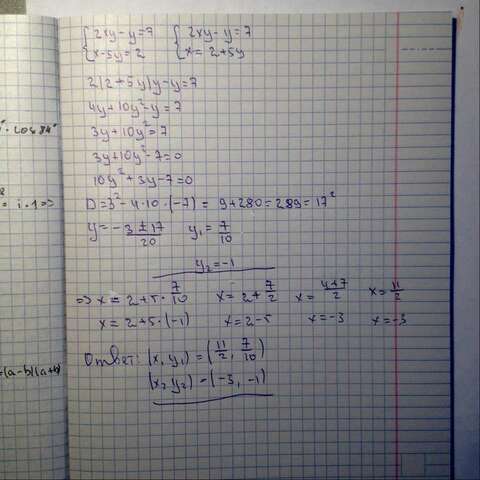 {2xy-y=7 {2xy-y=7
{x-5y=2 {x=2+5y
2(2+5y)y-y=7
4y+10y²-y=7
3y+10y²=7
3y+10y²-7=0
10y²+3y-7=0
D=3²-4·10·(-7)=9+280=289=17²
y=-3±17/20 y₁=7/10
y₂=-1
=>x=2+5·7/10 x=2+7/2 x=4+7/2 x=11/2
x=2+5·(-1) x=2-5 x=-3 x=-3
Ответ: (x,y₁)=(11/2, 7/10)
(x₂y₂)-(-3,-1)
· cos84°
= i·1=>
=(a-b)(a+b)